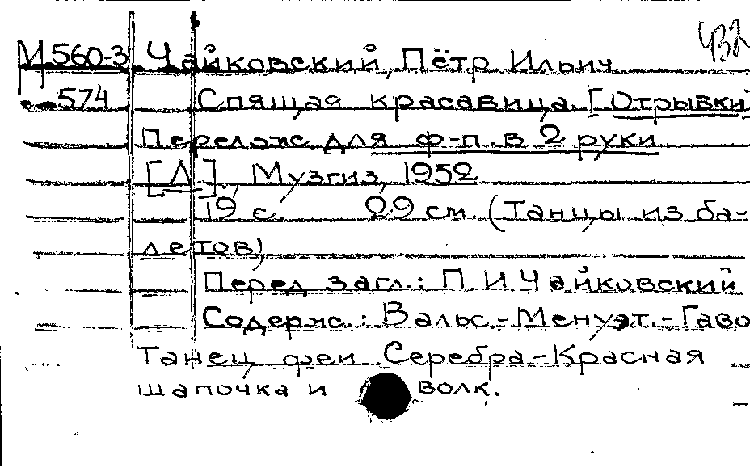 432
М560-3 Чайковский, Пётр Ильич
574 Спящая красавица. [Отрывки]
Перелож. для ф-п. в 2 руки
[Л], Музгиз, 1952
19 с. 29 см. (Танцы из ба-
летов)
Перед загл.: П.И. Чайковский
Содерж.: Вальс.-Менуэт.-Гаво
Танец феи Серебра-Красная
шапочка и волк.